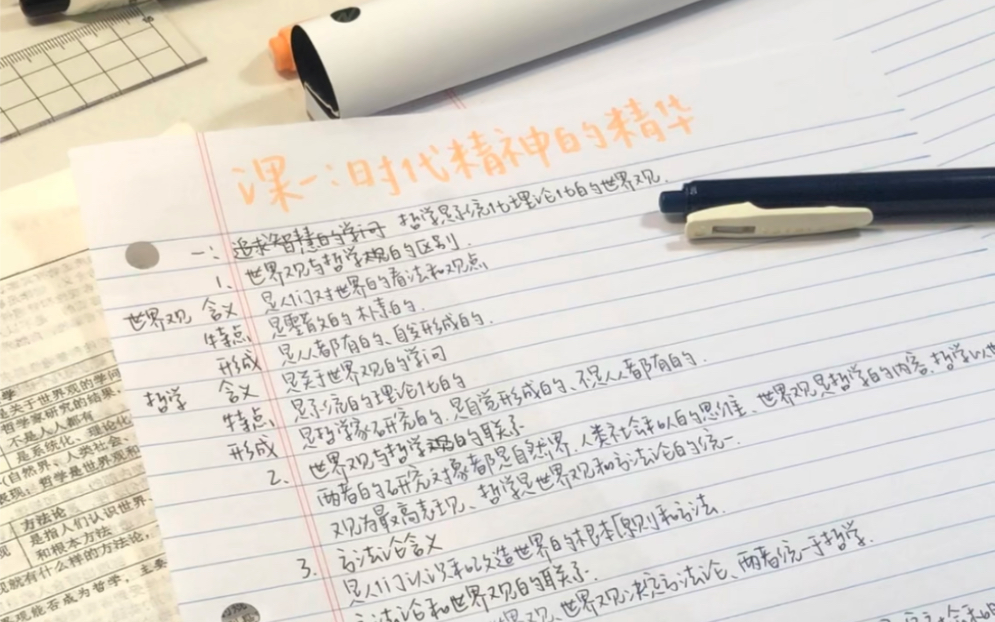 课一:时代精神的精华
一: 追求智慧的学问 哲学是系统化理论化的世界观.
1、世界观与哲学观的区别.
世界观 含义 是人们对世界的看法和观点
特点 是零散的朴素的.
形成 是人人都有的、自发形成的.
哲学 含义 是关于世界观的学问
特点 是系统的理论化的
形成 是哲学家研究的、是自觉形成的、不是人人都有的.
2、世界观与哲学观的联系
两者的研究对象都是自然界、人类社会和人的思维、世界观是哲学的内容、哲学以世
观为最高表现、哲学是世界观和方法论的统一.
3. 方法论含义
是人们认识和改造世界的根本原则和方法.
方法论和世界观的联系.
世界观决定方法论、两者统一于哲学.
学
是关于世界观的学问
哲学家研究的结果
不是人人都有
是系统化、理论化
(自然界、人类社会、
表现;哲学是世界观和
方法论
是指人们认识世界、
和根本方法
现就有什么样的方法论,
现能否成为哲学,主要